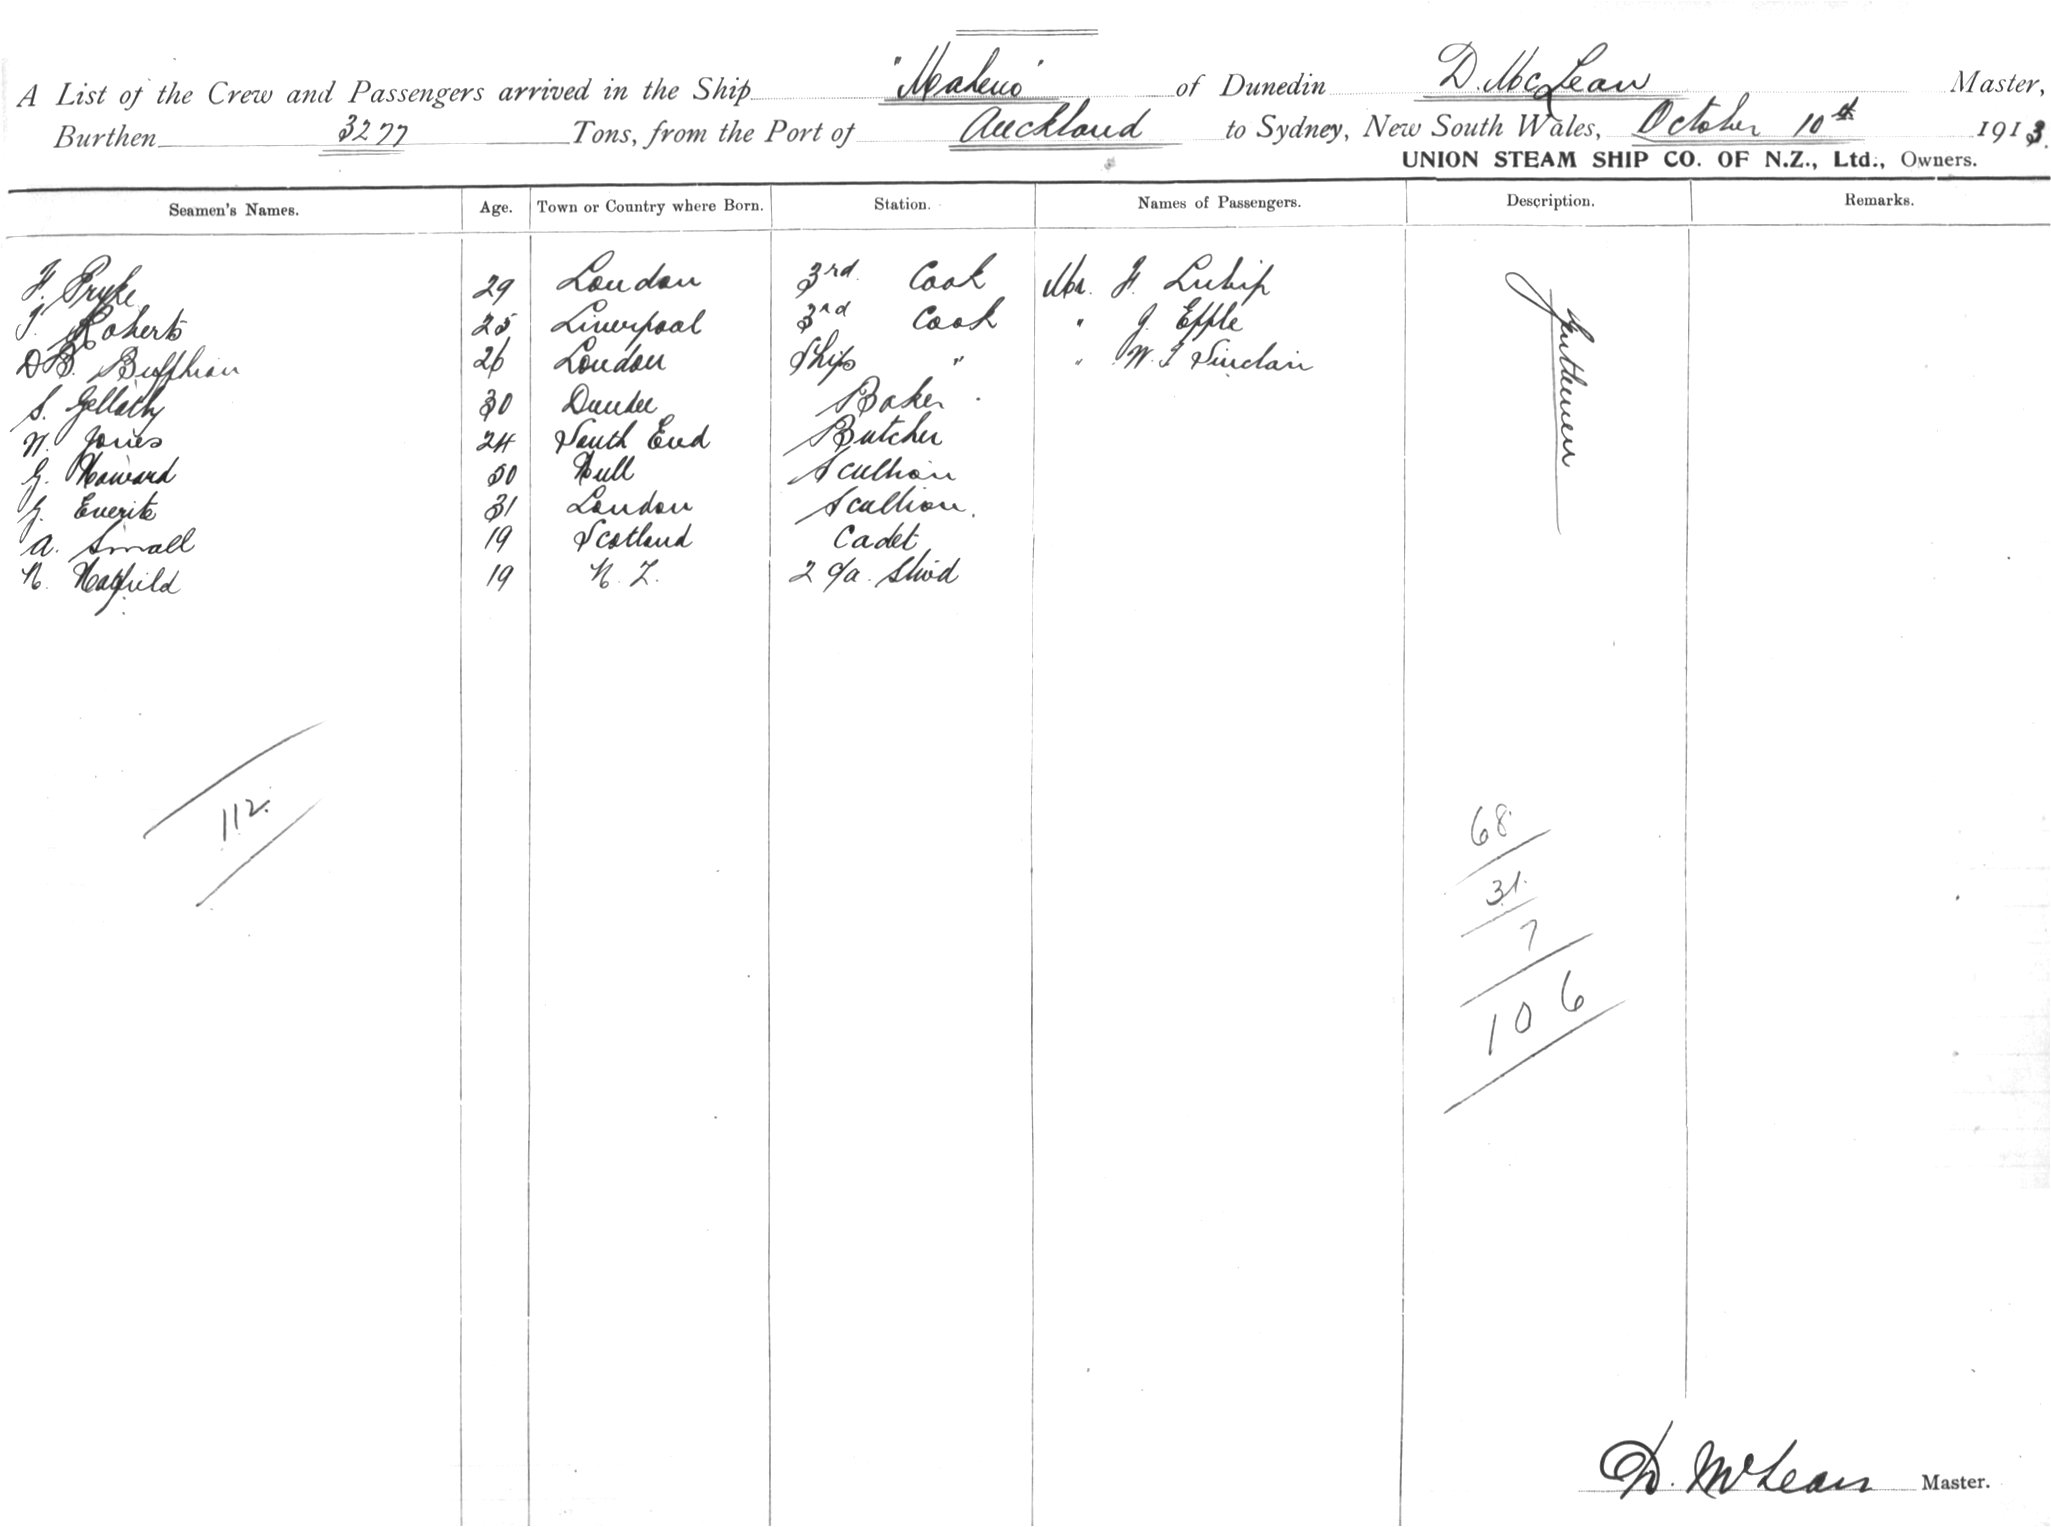 A List of the Crew and Passengers arrived in the Ship "Maheno" of Dunedin D. McLean Master,
Burthen 3277 Tons, from the Port of Auckland to Sydney, New South Wales, October 10th 1913.
UNION STEAM SHIP CO. OF N.Z., Ltd., Owners.
Seamen's Names. Age. Town or Country where Born. Station. Names of Passengers. Description. Remarks.
F. Pryke 29 London 3rd Cook Mr. F.
Roberts 25 Liverpool 3rd Cook " J. Epple
D B. 26 London Ships " " W. J Sinclair
S. Gellatly 30 Dundee Baker
W. Jones 24 South End Butcher
G. Howard 50 Hull Scullion
G. Everitt 31 London Scullion.
A. Small 19 Scotland Cadet
N. Hatfield 19 N. Z. 2 Stwd
Gentlemen
112.
68.
31.
7
106
D. McLean Master.